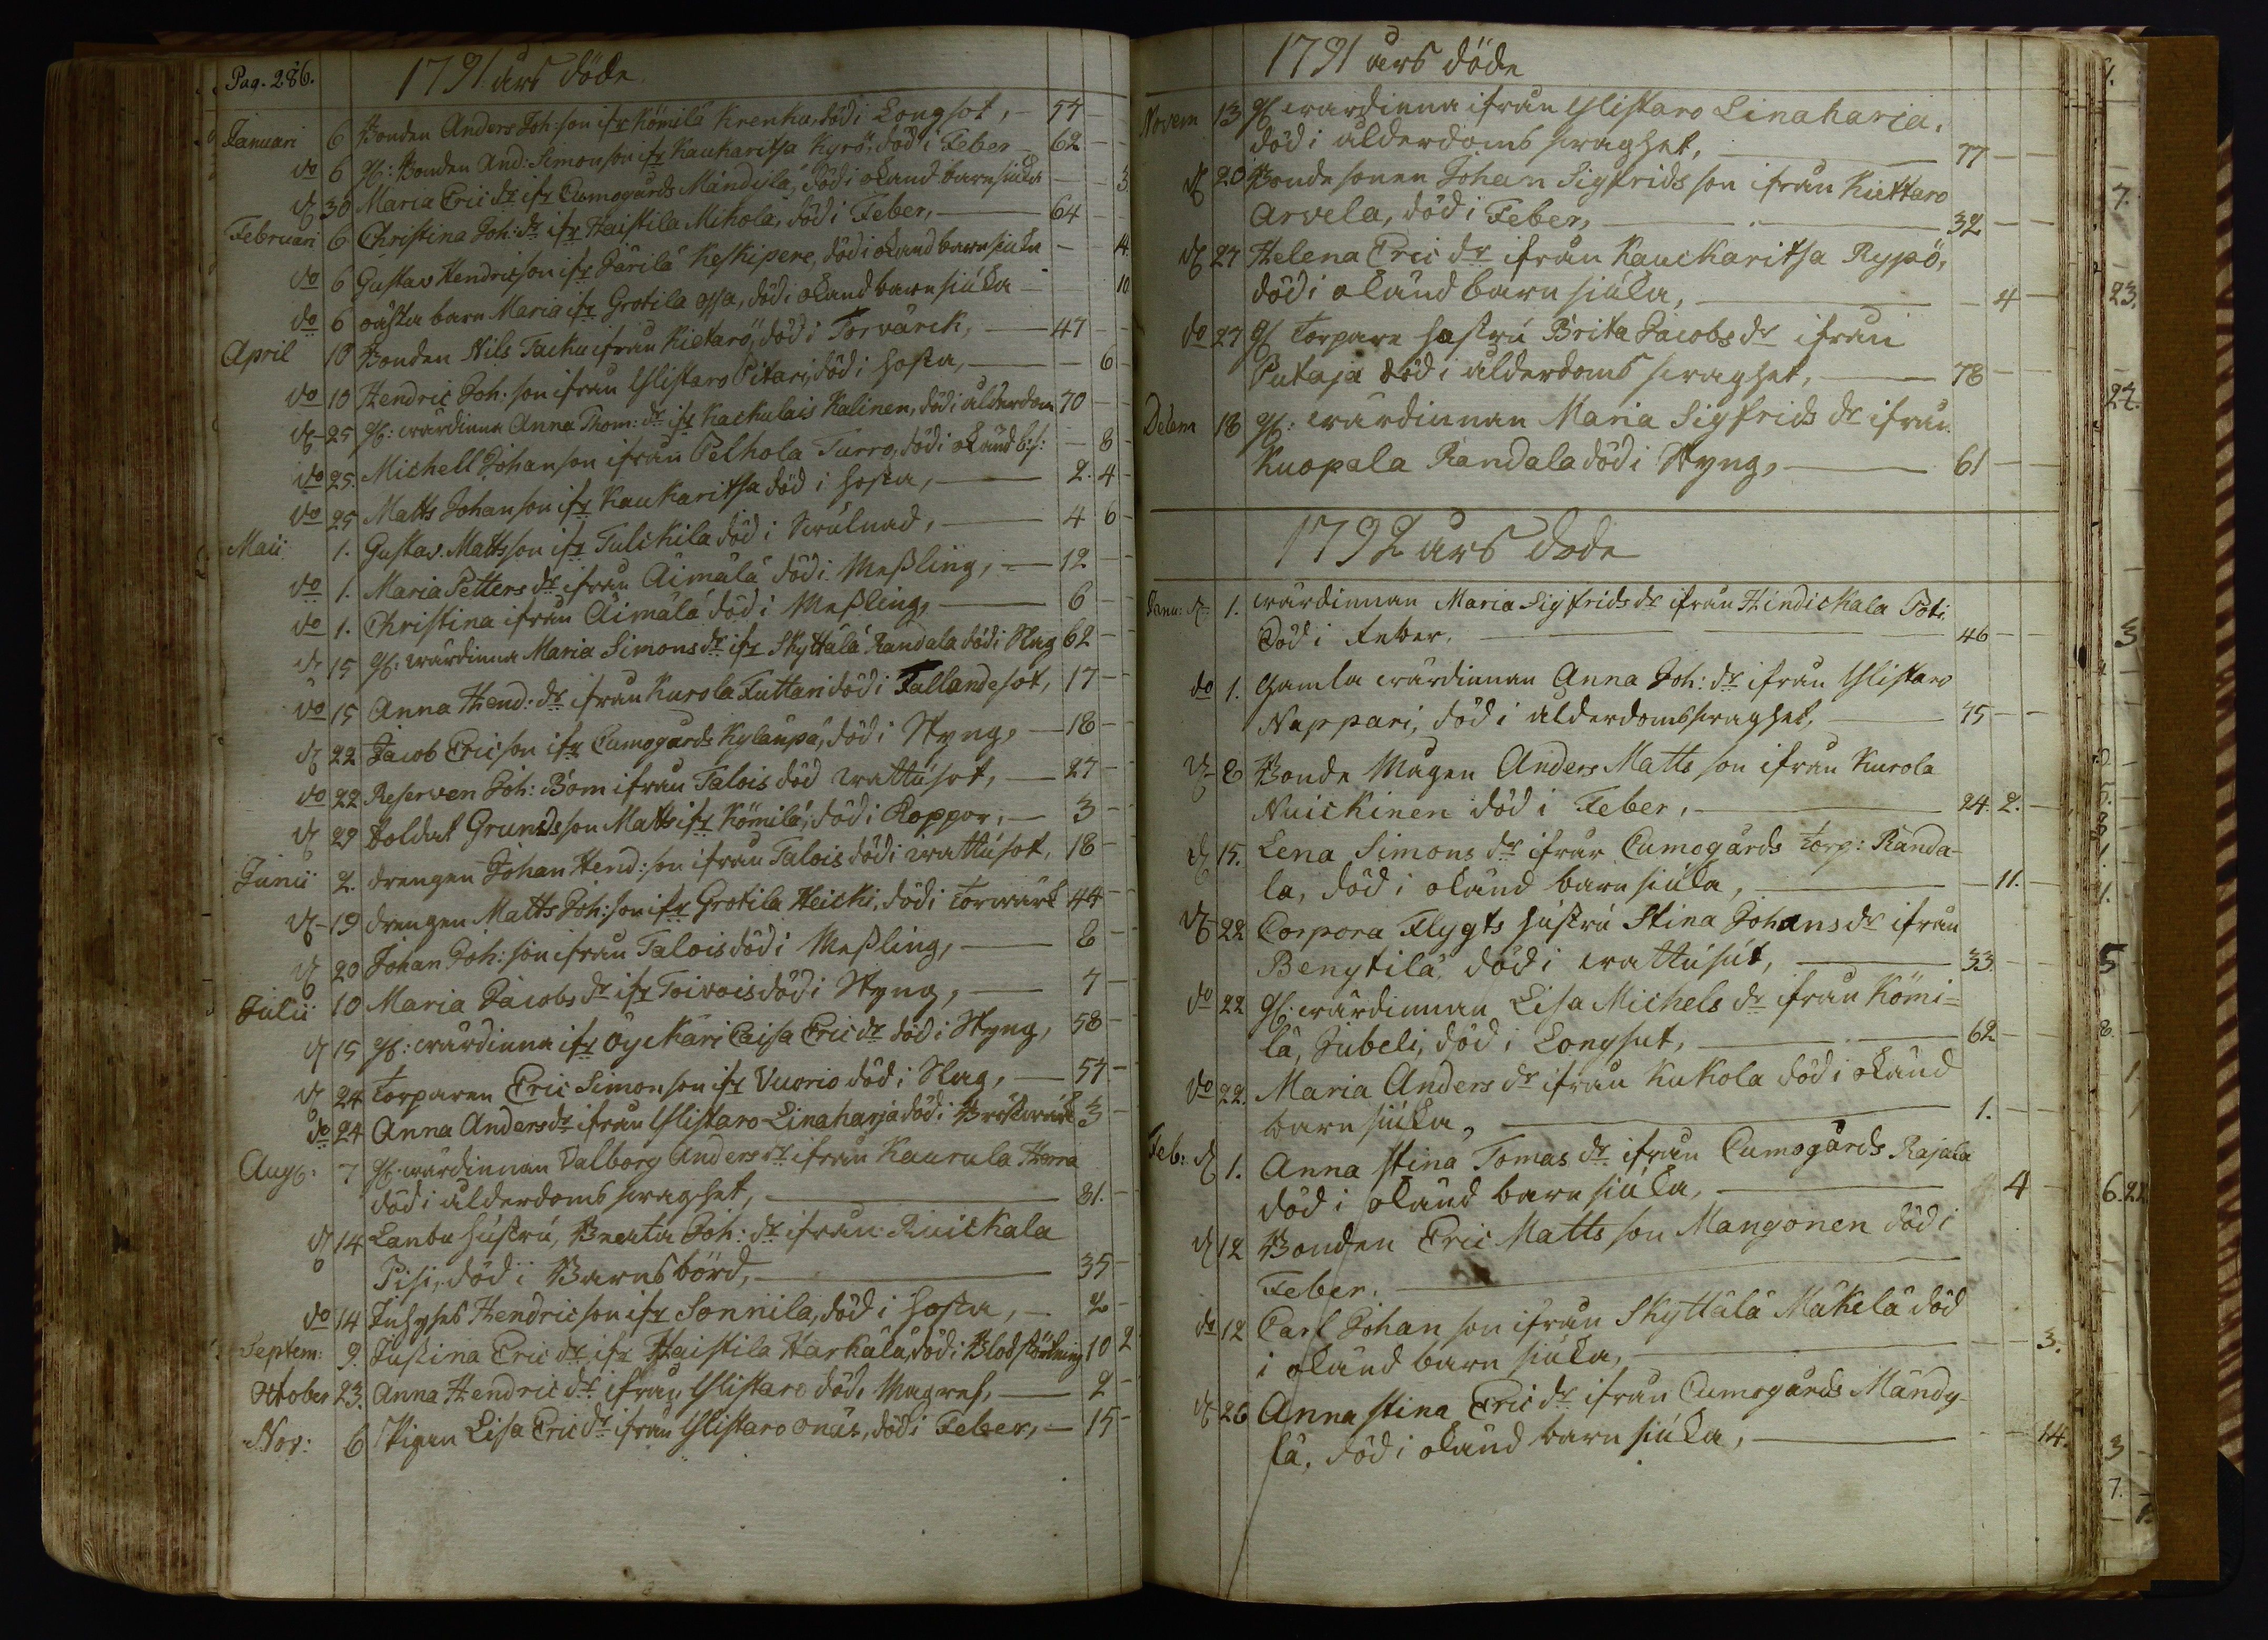 Pag. 286. 1791 års döde
Januari 6 Bonden Anders Joh:son ifr Kömilä Krenku, död i Longsot, 57
do 6 gl: Bonden And: Simonson ifr Kaukaritsa Kyrö, död i Feber 62
d 30 Maria Eric dr ifr Cumogårds Mändylä, död i okänd barnsiúka 3
Februari 6 Christina Joh: dr ifr Haistila Mikola, död i Feber, 64
do 6 Gustav Hendricson ifr Järilä Keskipere, död i okänd barnsiuka 4
do 6 oäkta barn Maria ifr Grotila ossa, död i okänd barnsiúka 10
April 10 Bonden Nils Tacku ifrån Kietarö, död i Torvärck, 47
do 10 Hendric Joh:son ifrån Ylistaro Pitari, död i hosta, 6
d 25 gl: wärdinna Anna Thom: dr ifr Kackulais Kalinen, död i ålderdom 70
do 25. Michell Johanson ifrån Pelhola Turro, död i okänd b:s: 8
do 25 Matts Johanson ifr Kaukaritsa död i hosta, 2. 4
Maii 1. Gustav Mattsson ifr Tulckila död i Swulnad, 4 6
do 1. Maria Petters dr ifrån Äimälä död i Meßling, 12
do 1. Christina ifrån Äimälä död i Meßling, 6
d 15 gl: wärdinna Maria Simons dr ifr Skyttälä Randala död i Slag 62
do 15 Anna Hend: dr ifrån Kurola Futtari död i Fallandesot, 17
d 22 Jacob Ericson ifr Cumogårds Kylänpä, död i Styng, 18
do 22 Reserven Joh: Bom ifrån Talois död wattúsot, 27
d 29 Soldat Grunds son Matts ifr Kömilä, död i Koppor, 3
Junii 2. drengen Johan Hend:son ifrån Talois död i wattúsot, 18
d 19 drengen Matts Joh:son ifr Grotila Heicki, död i Torwärk 44
d 20 Johan Joh:son ifrån Talois död i Meßling, 8
Julii 10 Maria Jacobs dr ifr Toivois död i Styng, 7
d 15 gl: wärdinna ifr Öyckäri Caisa Eric dr död i Styng, 58
d 24 Torparen Eric Simonson ifr Vuorio död i Slag, 57
do 24 Anna Anders dr ifrån Ylistaro Linaharja död i Bröstwärk 3
Aug: 7 gl: wärdinnan Valborg Anders dr ifrån Kaurula Herra
död i ålderdoms swaghet, 81.
d 14 Lantbu hústrú, Beata Joh: dr ifrån Ruickala
Pisi, död i Barnsbörd, 35
do 14 Johan Hendricson ifr Sonnila, död i hosta, 2
Septem: 9. Justina Eric dr ifr Haistila Harkälä, död i Blodstörtning 10 2
October 23. Anna Hendric dr ifrån Ylistaro död i Magref, 2
Nov: 6 Pigan Lisa Eric dr ifrån Ylistaro onäs, död i Feber, 15
1791 års döde
Novem 13 gl wärdinna ifrån Ylistaro Linaharja,
död i ålderdoms swaghet, 77
d 20 Bondesonen Johan Sigfrids son ifrån Kiettaro
Arvela, död i Feber, 32
d 27 Helena Eric dr ifrån Kauckaritsa Rypö,
död i okänd barn siúka, 4
do 27 gl Torpare hustrú Brita Jacobs dr ifrån
Putaja död i ålderdoms swaghet, 78
Decem 18 gl: wärdinnan Maria Sigfrids dr ifrån
Kuopala Randala död i Styng, 61
1792 års döde
Janu: d 1. wärdinnan Maria Sigfrids dr ifrån Hindickala Poti
Död i Feber. 46
do 1. Gamla wärdinnan Anna Joh: dr ifrån Ylistaro
Nappari, död i ålderdomsswaghet, 75
d 8 Bonde Mågen Anders Matts son ifrån Kurola
Nuickinen död i Feber, 24. 2.
d 15. Lena Simons dr ifrån Cumogårds torp: Randa-
la, död i okänd barn siúka, 11.
d 22 Corpora Flygts hústrú Stina Johans dr ifrån
Benytilä, död i wattúsút, 33.
do 22 gl: wärdinnan Lisa Michels dr ifrån Kömi=
lä, Jubeli, död i Longsut, 62
do 22. Maria Anders dr ifrån Kukola död i okänd
barnsiúka, 1.
Feb: d 1. Anna Stina Tomas dr ifrån Cumogårds Rajala
död i okänd barnsiúka, 4
d 12 Bonden Eric Matts son Mangonen död i
Feber.
do 12 Carl Johan son ifrån Skyttälä Mäkelä död
i okänd barn siúka, 3.
d 26 Anna Stina Eric dr ifrån Cumogårds Mändy-
lä, död i okänd barn siúka, 14.